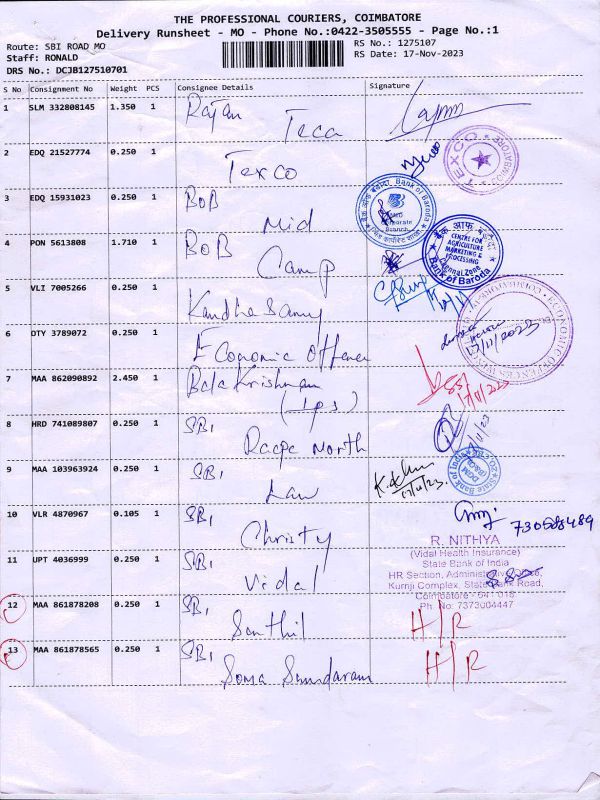 THE PROFESSIONAL COURIERS, COIMBATORE
Delivery Runsheet - MO - Phone No.:0422-3505555 - Page No.:1
Route: SBI ROAD MO
Staff: RONALD
DRS No.: DCJB127510701
RS No.: 1275107
RS Date: 17-Nov-2023
S No Consignment No Weight PCS Consignee Details Signature
1 SLM 332808145 1.350 1 Rajan
Teca
2 EDQ 21527774 0.250 1 Texco
TEXCO
3 EDQ 15931023 0.250 1 BoB
Mid
Bank of Baroda
4 PON 5613808 1.710 1 BOB
Camp
बैंक ऑफ बड़ौदा
CENTRE FOR
AGRICULTURE
MARKETING &
PROCESSING
Bank of Baroda
5 VLI 7005266 0.250 1 Kandhasamy
6 DTY 3789072 0.250 1 Economic Offence
17/11/2023
7 MAA 862090892 2.450 1 BalaKrishnan
(Ips)
8 HRD 741089807 0.250 1 SBI
Racpc North
9 MAA 103963924 0.250 1 SBI
Law
17/11/23
State Bank of India
10 VLR 4870967 0.105 1 SBI
Christy
11 UPT 4036999 0.250 1 SBI
Vidal
R. NITHYA
(Vidal Health Insurance)
State Bank of India
HR Section, Administrative
Kurnji Complex, State Bank Road,
Coimbatore - 641 018
Ph. No: 7373004447
12 MAA 861878208 0.250 1 SBI
Senthil
H/R
13 MAA 861878565 0.250 1 SBI
Soma Sundaram
H/R